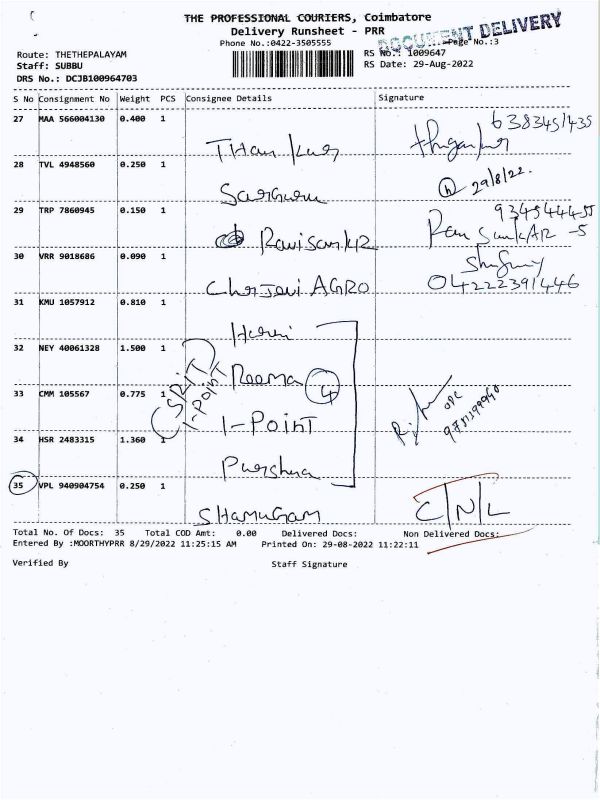 THE PROFESSIONAL COURIERS, Coimbatore
Delivery Runsheet - PRR
DOCUMENT DELIVERY
Phone No.:0422-3505555
Page No.:3
Route: THETHEPALAYAM
RS No.: 1009647
Staff: SUBBU
RS Date: 29-Aug-2022
DRS No.: DCJB100964703
S No Consignment No Weight PCS Consignee Details Signature
27 MAA 566004130 0.400 1
6383451435
28 TVL 4948560 0.250 1
29/8/22.
29 TRP 7860945 0.150 1
9345444455
-5
Ravisankar
30 VRR 9018686 0.090 1
AGRO 04222391446
31 KMU 1057912 0.810 1
32 NEY 40061328 1.500 1
Reema 4
33 CMM 105567 0.775 1
CSRIT
1-POINT
1-POINT
34 HSR 2483315 1.360 1
35 VPL 940904754 0.250 1
SHAMUGAM C/N/L
Total No. Of Docs: 35 Total COD Amt: 0.00 Delivered Docs: Non Delivered Docs:
Entered By :MOORTHYPRR 8/29/2022 11:25:15 AM Printed On: 29-08-2022 11:22:11
Verified By Staff Signature